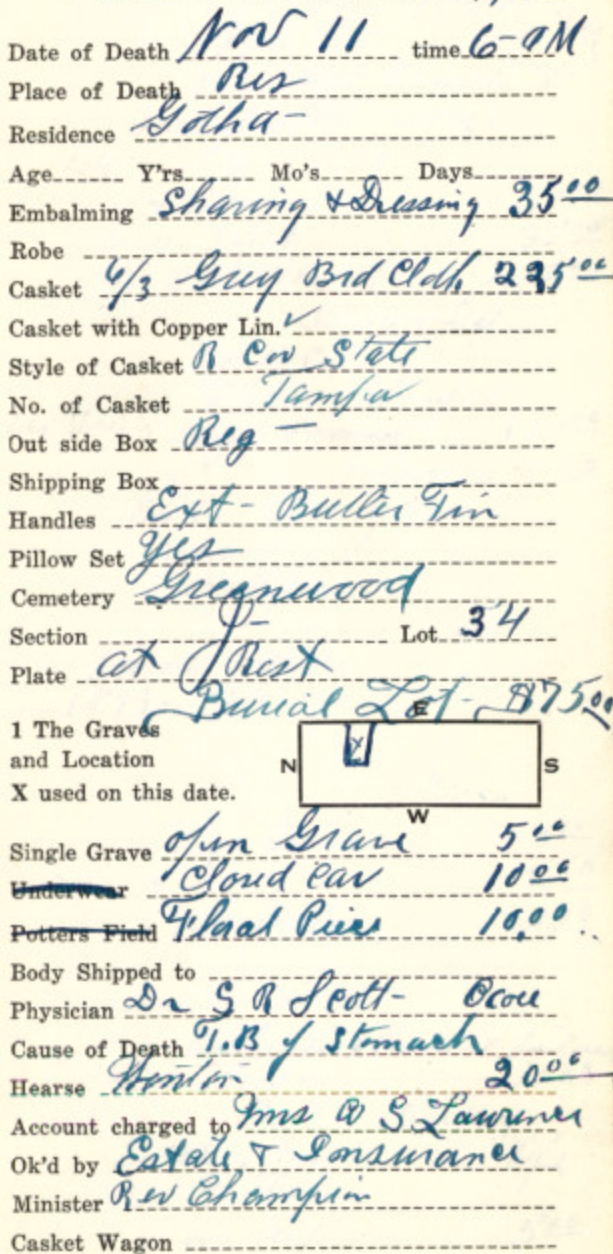 Date of Death Nov 11 time 6-AM
Place of Death Res
Residence Gotha-
Age Y'rs Mo's Days
Embalming Shaving & Dressing 35 00
Robe
Casket 6/3 Grey Brd Cloth 225 00
Casket with Copper Lin. ✓
Style of Casket Cov State
No. of Casket Tampa
Out side Box Reg -
Shipping Box
Handles Ext - Butler Tin
Pillow Set yes
Cemetery Greenwood
Section J- Lot 34
Plate at Rest
Burial Lot- $75 00
1 The Graves
and Location
X used on this date.
E
N X S
W
Single Grave open Grave 5 00
Underwear Closed Car 10 00
Potters Field Floral Piece 10.00
Body Shipped to
Physician Dr S R Scott- Ocoee
Cause of Death T.B of Stomach
Hearse 20 00
Account charged to Mrs S Lawrence
Ok'd by Estate & Insurance
Minister Rev Champion
Casket Wagon